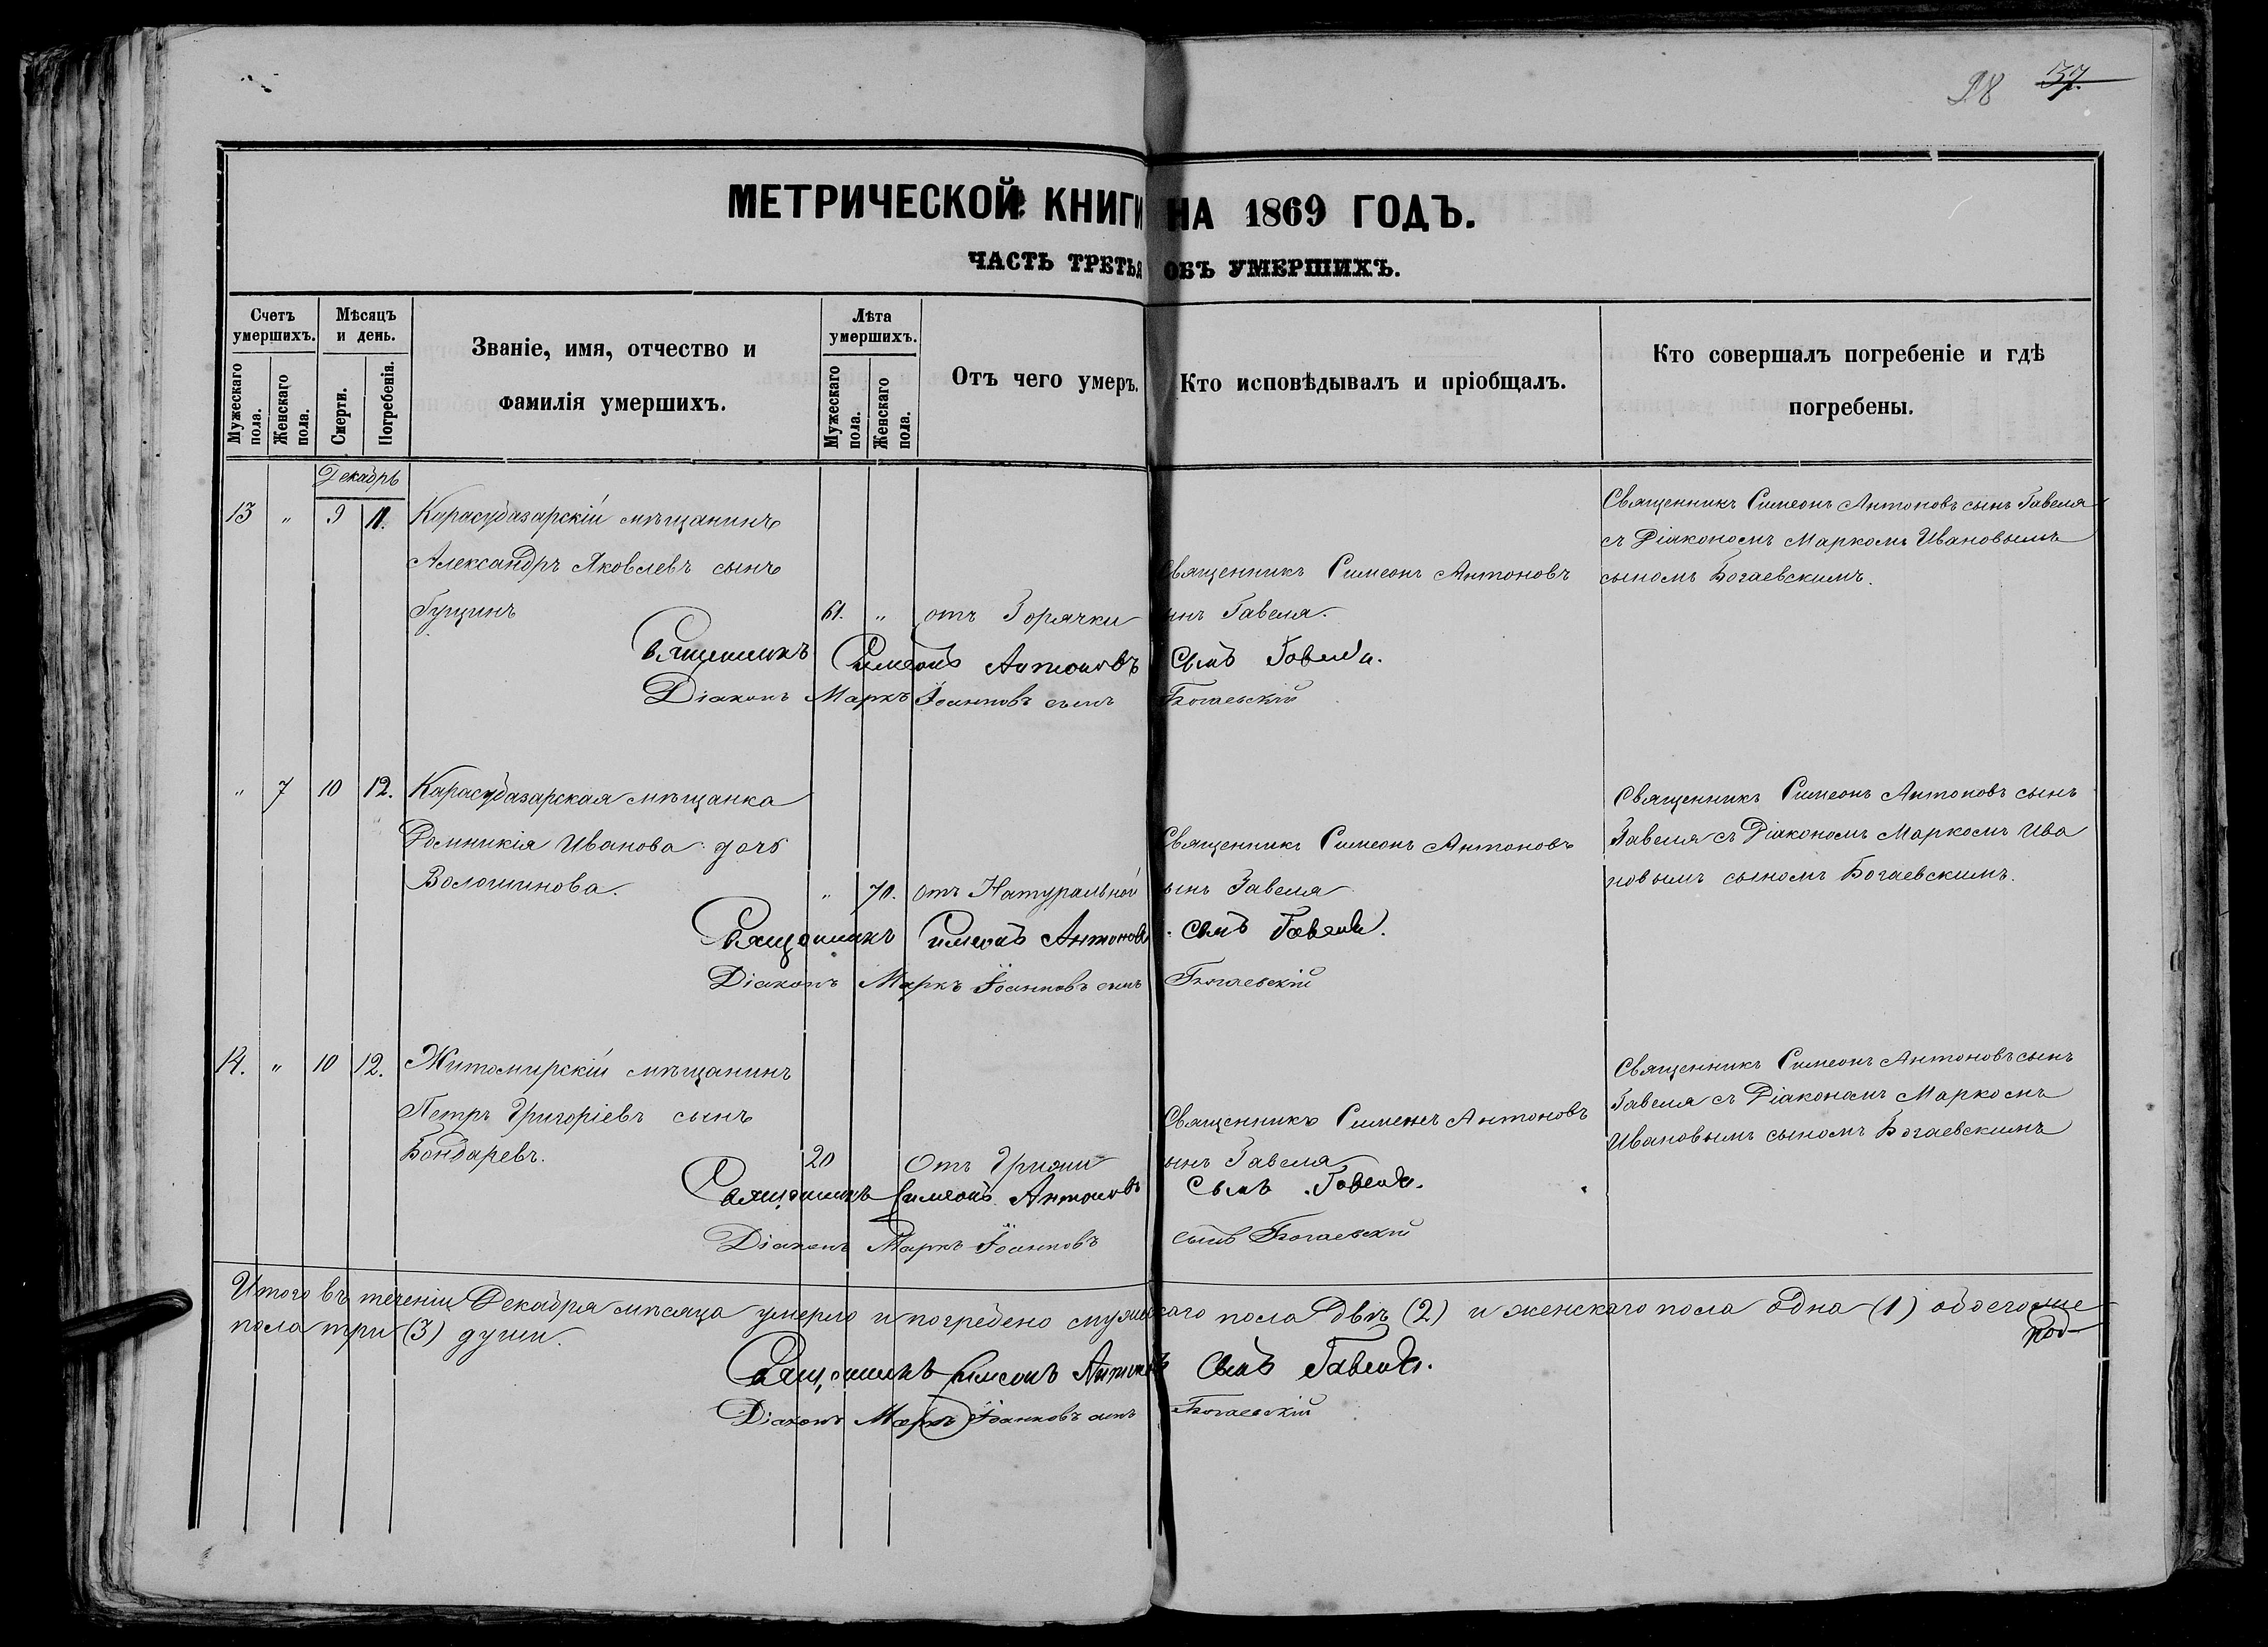 98 37.
МЕТРИЧЕСКОЙ КНИГИ НА 1869 ГОДЪ.
ЧАСТЬ ТРЕТЬЯ ОБЪ УМЕРШИХЪ.
Счетъ умершихъ.
Мужескаго пола.
Женскаго пола.
Мѣсяцъ и день.
Смерти.
Погребенія.
Званіе, имя, отчество и фамилія умершихъ.
Лѣта умершихъ.
Мужескаго пола.
Женскаго пола.
Отъ чего умеръ.
Кто исповѣдывалъ и пріобщалъ.
Кто совершалъ погребеніе и гдѣ погребены.
Декабрь
13 " 9 11. Карасубазарскій мѣщанинъ
Александръ Яковлевъ сынъ
Гущинъ
61. " отъ Горячки
Священникъ Симеонъ Антоновъ
сынъ Гавеля.
Священникъ Симеонъ Антоновъ сынъ Гавеля
съ Діакономъ Маркомъ Ивановымъ
сыномъ Богаевскимъ.
Священникъ Симеонъ Антоновъ Сынъ Гавеля.
Діаконъ Маркъ Іоанновъ сынъ Богаевскій
" 7 10 12. Карасубазарская мѣщанка
Домникія Иванова дочь
Волошинова.
" 70. отъ Натуральной
Священникъ Симеонъ Антоновъ
сынъ Гавеля
Священникъ Симеонъ Антоновъ сынъ
Гавеля съ Діакономъ Маркомъ Ива
новымъ сыномъ Богаевскимъ.
Священникъ Симеонъ Антоновъ Сынъ Гавеля.
Діаконъ Маркъ Іоанновъ сынъ Богаевскій
14. " 10 12. Житомирскій мѣщанинъ
Петръ Григоріевъ сынъ
Бондаревъ.
20 Отъ
Священникъ Симеонъ Антоновъ
сынъ Гавеля
Священникъ Симеонъ Антоновъ сынъ
Гавеля съ Діакономъ Маркомъ
Ивановымъ сыномъ Богаевскимъ
Священникъ Симеонъ Антоновъ Сынъ Гавеля.
Діаконъ Маркъ Іоанновъ сынъ Богаевскій
Итого въ теченіи Декабря мѣсяца умерло и погребено мужескаго пола двѣ (2) и женскаго пола одна (1) обоего же
пола три (3) души.
Священникъ Симеонъ Антоновъ Сынъ Гавеля.
Діаконъ Маркъ Іоанновъ сынъ Богаевскій